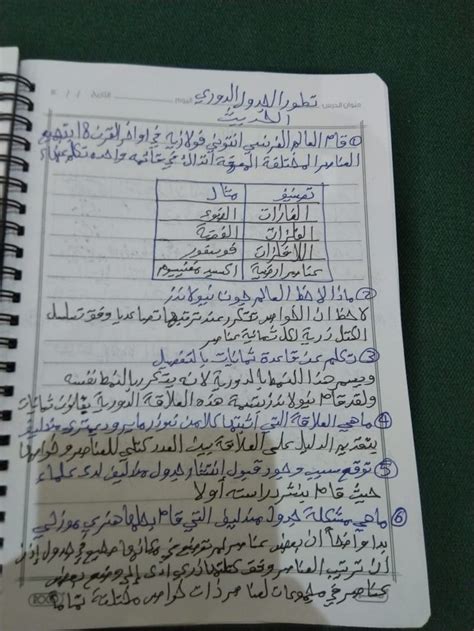 عنوان الدرس اليوم التاريخ / / ١٤
تطور الجدول الدوري
الحديث
① قام العالم الفرنسي انتوني لافوازيه في اواخر القرن ١٨ بتجميع
العناصر المختلفة المعروفة آنذاك في قائمه واحده تكلم عنها
تصنيف مثال
الغازات الضوء
الفلزات الفضة
اللافلزات فوسفور
عناصر ارضية اكسيد مغنيسيوم
② ماذا لاحظ العالم جون نيولاندز
لاحظ ان الخواص تتكرر عند ترتيبها تصاعديا وفق تسلسل
الكتل الذرية لكل ثمانية عناصر
③ تكلم عن قاعدة ثمانيات بالتفصيل
ويسم هذا النمط بالدورية لانه يتكرر بالنمط نفسه
ولقد قام نيولاندز بتسمية هذه العلاقة الدورية بقانون ثمانيات
④ ماهي العلاقة التي أثبتها كلا من لوثر ماير وديمتري مندليف
بتقديم الدليل على العلاقة بين العدد كتلي للعناصر وخواصها
⑤ توقع سبب وجود قبول انتشار جدول مندليف لدى علماء
حيث قام بنشر دراسته أولا
⑥ ماهي مشكلة جدول مندليف التي قام بحلها هنري موزلي
بدا واضحاً أن بعض عناصر لم توضع في مكانها صحيح في جدول إذ
أن ترتيب العناصر وفق كتلها الذري ادى إلى وضع بعض
عناصر في مجموعات لعناصر ذات خواص مختلفة تماماً